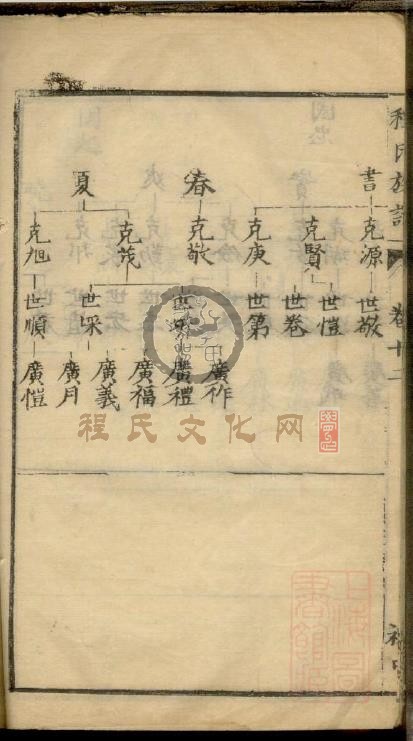 程氏族譜
卷十二
書
克源
世敬
克賢
世愷
世卷
克庚
世第
春
克敬
廣祚
廣禮
廣福
夏
克茂
世堔
廣義
廣月
克旭
世順
廣愷
程氏文化网
上海圖書館藏